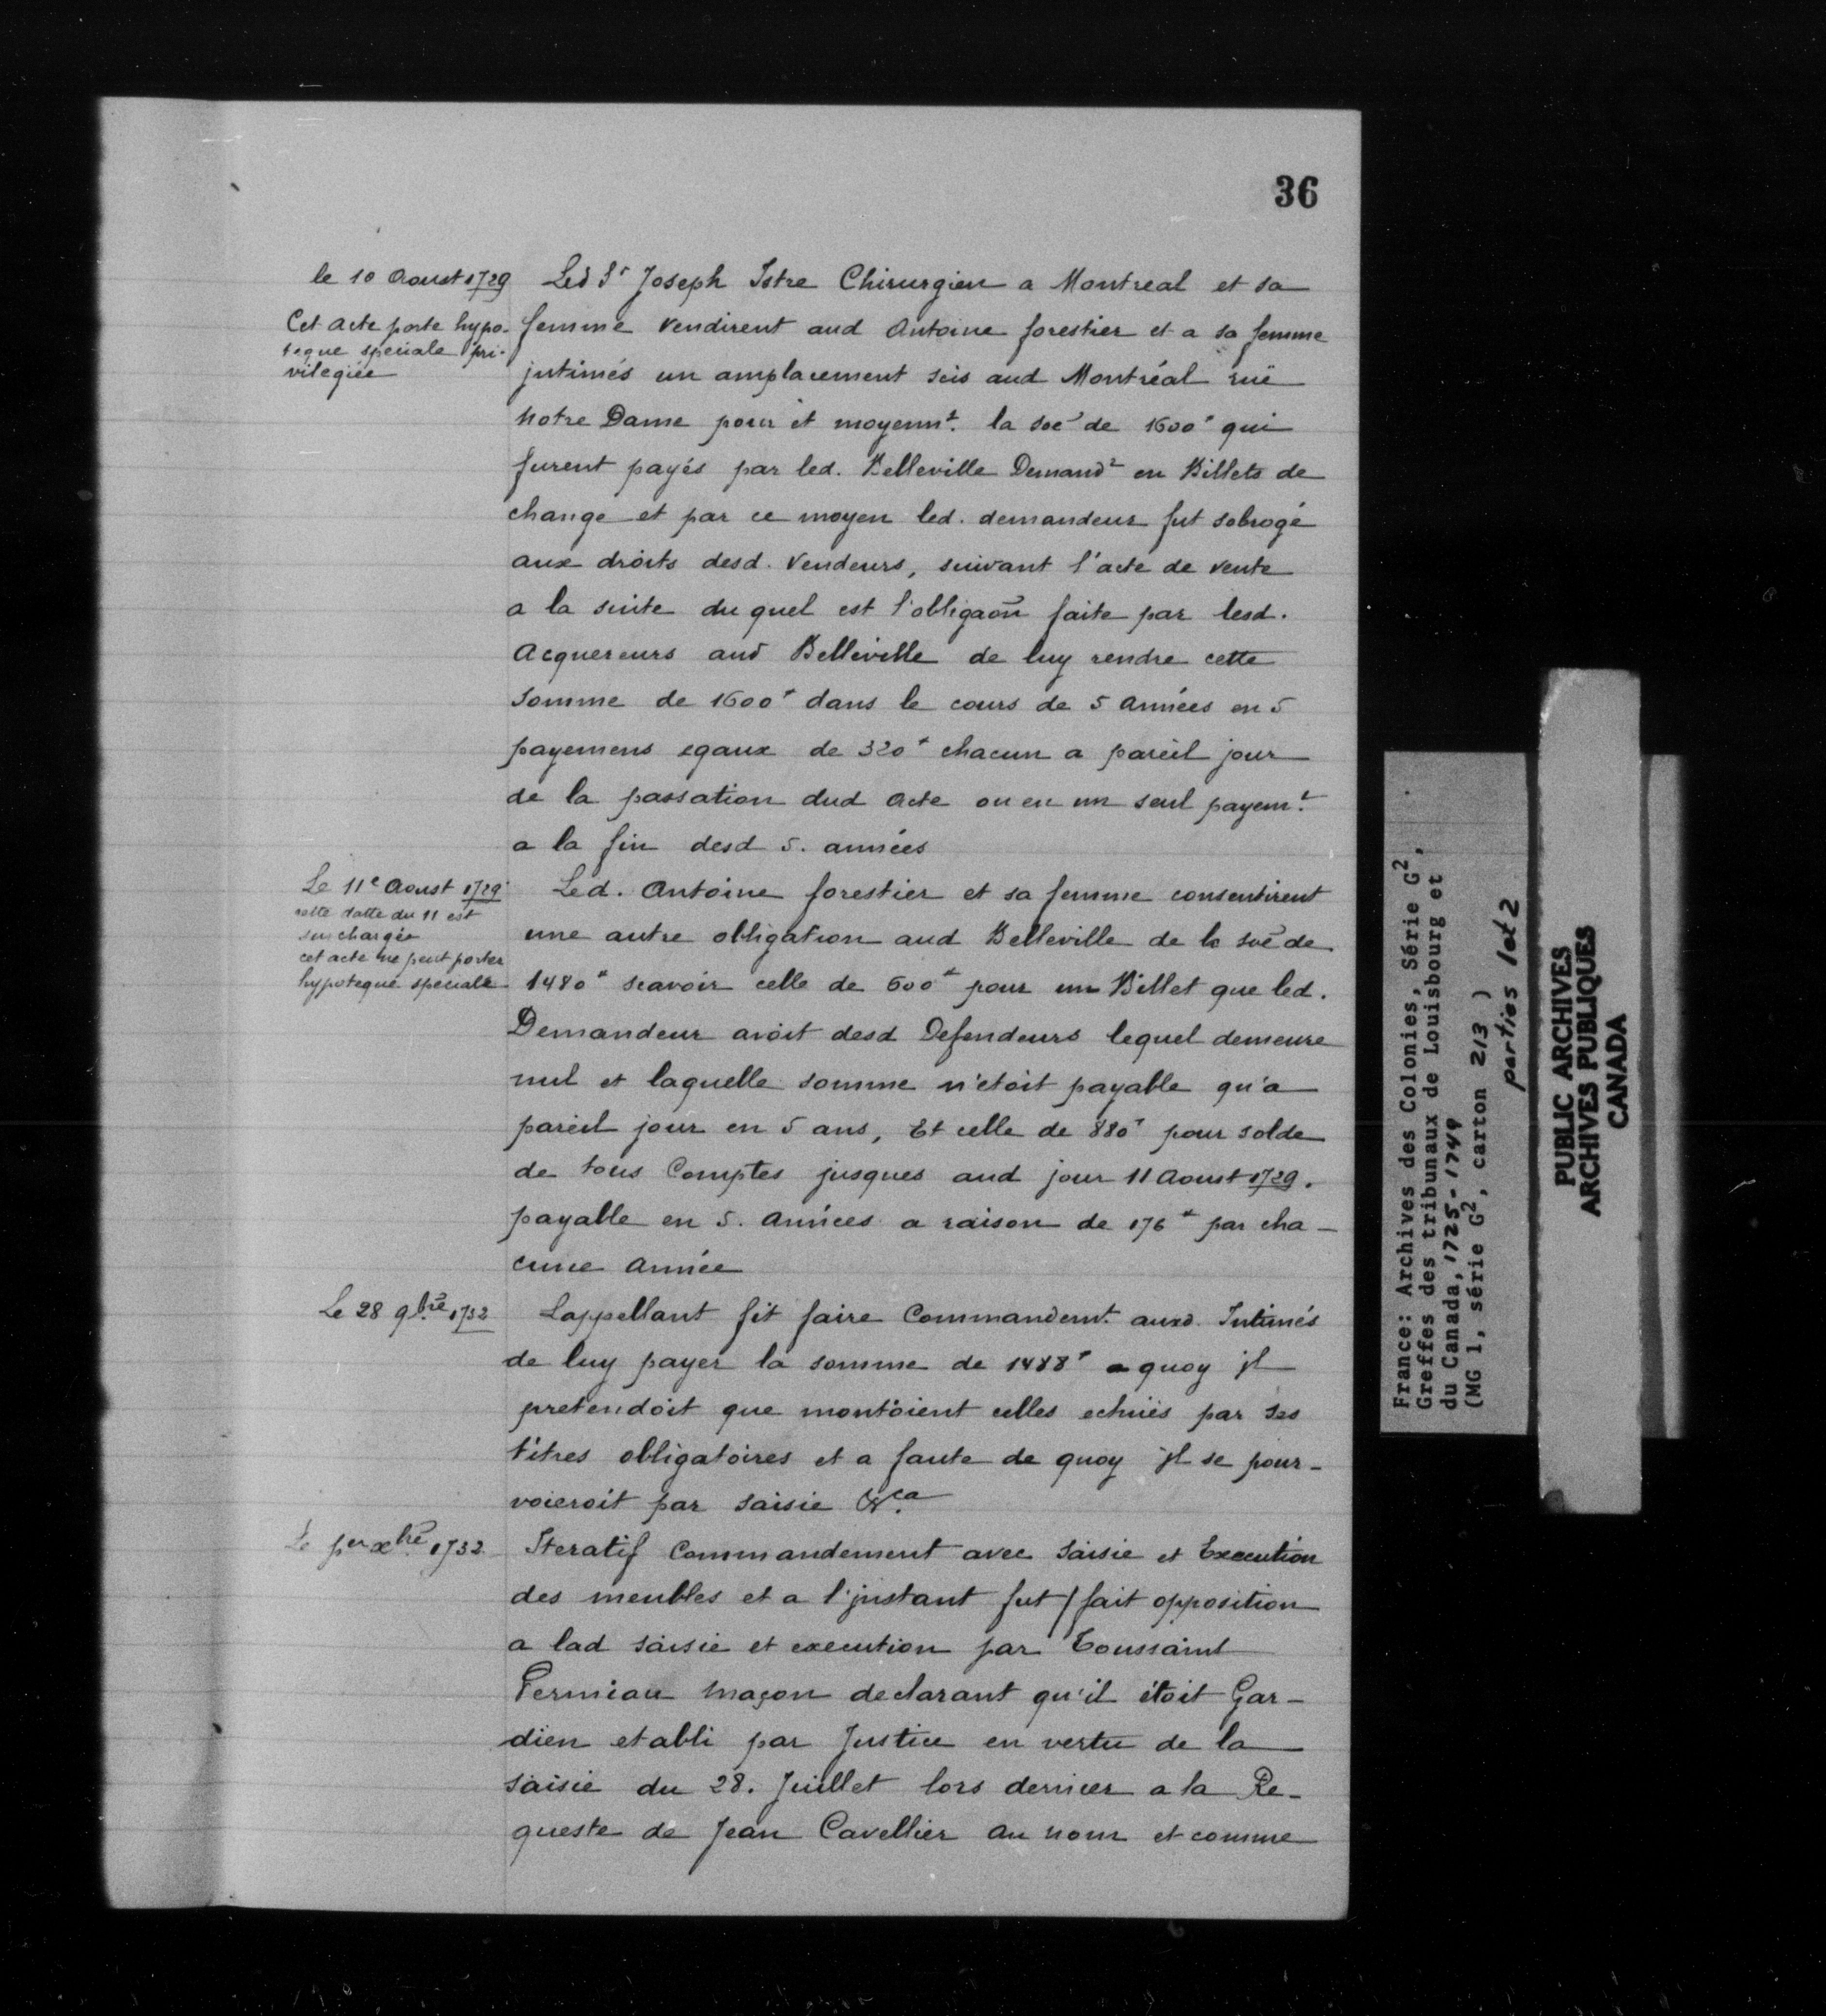 36
le 10 Aoust 1729
Cet acte porte hypo-
teque speciale pri-
vilegiée
Led Sr Joseph Istre Chirurgien a Montreal et sa
femme vendirent aud Antoine forestier et a sa femme
jntimés un amplacement scis aud Montréal ruë
Notre Dame pour et moyennt. la soe de 1600# qui
furent payés par led. Belleville Demandr en Billets de
change et par ce moyen led. demandeur fut sobrogé
aux droits desd. Vendeurs, suivant l'acte de vente
a la suite du quel est l'obligaõn faite par lesd.
Acquereurs aud Belleville de luy rendre cette
Somme de 1600# dans le cours de 5 Années en 5
payemens egaux de 320# chacun a pareil jour
de la passation dud Acte ou en un seul payemt.
a la fin desd 5. années
Le 11e Aoust 1729
cette datte du 11 est
surchargée
cet acte ne peut porter
hypoteque speciale
Led. Antoine forestier et sa femme consentirent
une autre obligation aud Belleville de la soe de
1480# scavoir celle de 600# pour un Billet que led.
Demandeur avoit desd Defendeurs lequel demeure
nul et laquelle somme n'etoit payable qu'a
pareil jour en 5 ans, Et celle de 880# pour solde
de tous Comptes jusques aud jour 11 Aoust 1729.
payable en 5. Années a raison de 176# par cha-
cune Année
Le 28 9bre 1732
Lappellant fit faire Commandemt. auxd. Intimés
de luy payer la somme de 1488# a quoy jl
pretendoit que montoient celles echuës par ses
titres obligatoires et a faute de quoy jl se pour-
voieroit par saisie &ca
Le per xbre 1732
Iteratif Commandement avec saisie et Execution
des meubles et a l'jnstant fut / fait opposition
a lad saisie et execution par Toussaint
Permiau Maçon declarant qu'il étoit Gar-
dien etabli par Justice en vertu de la
saisie du 28. Juillet lors dernier a la Re-
queste de Jean Cavellier Au nom et comme
France: Archives des Colonies, Série G2,
Greffes des tribunaux de Louisbourg et
du Canada, 1725-1749
(MG 1, série G2, carton 213 )
parties 1et 2
PUBLIC ARCHIVES
ARCHIVES PUBLIQUES
CANADA